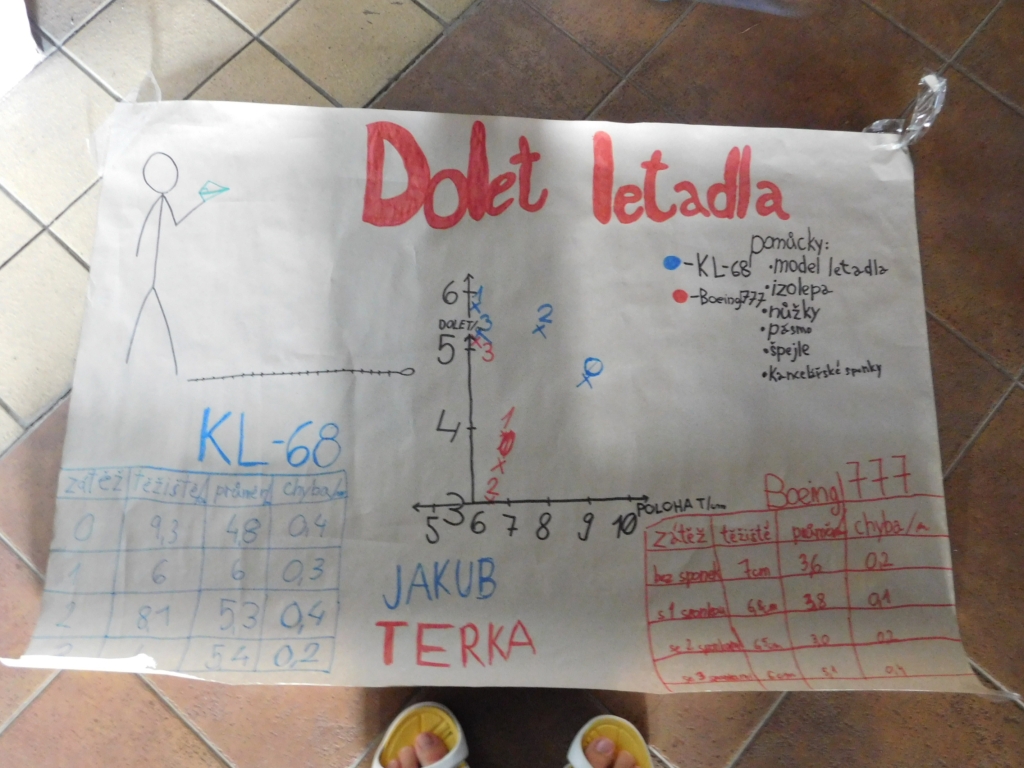 Dolet letadla
pomůcky:
-KL-68
• model letadla
-Boeing777
• izolepa
• nůžky
• pásmo
• špejle
• Kancelářské sponky
6
1
2
DOLET/
3
5
3
0
4
1
0
2
3
5 6 7 8 9 10
POLOHA T/cm
KL-68
zátěž těžiště/ průměr/ chyba/m
0 9,3 4,8 0,4
1 6 6 0,3
2 8,1 5,3 0,4
5,4 0,2
JAKUB
TERKA
Boeing 777
zátěž těžiště průměr chyba/m
bez sponek 7cm 3,6 0,2
s 1 sponkou 3,8 0,1
se 2 3,0 0,2
se 3